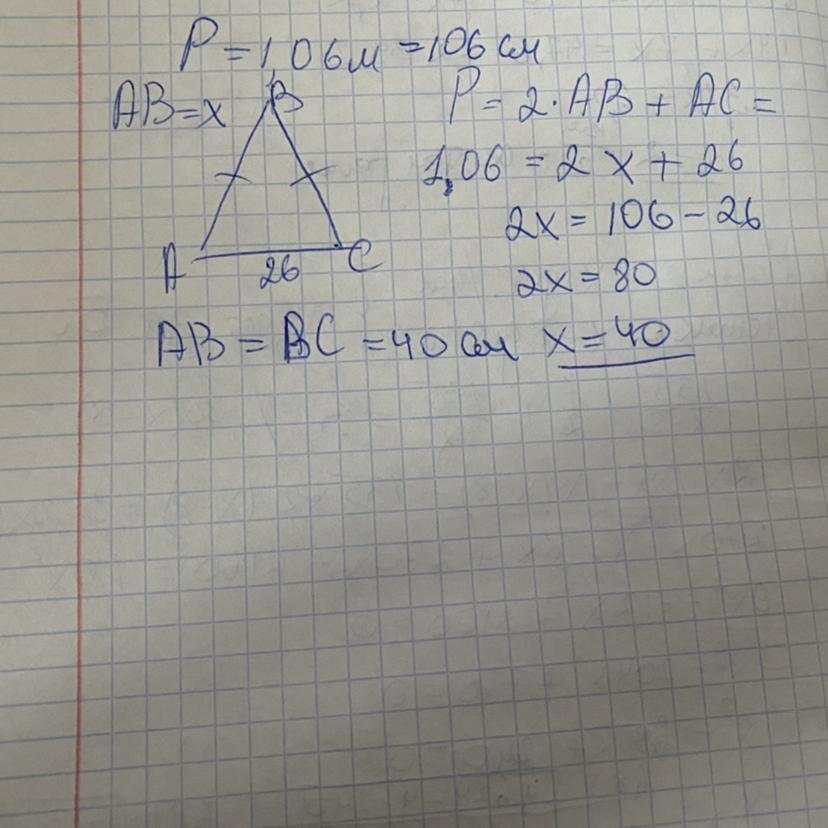 P = 1,06м = 106 см
AB = x
B
P = 2·AB + AC =
1,06 = 2x + 26
2x = 106 - 26
A 26 C
2x = 80
AB = BC = 40 см x = 40